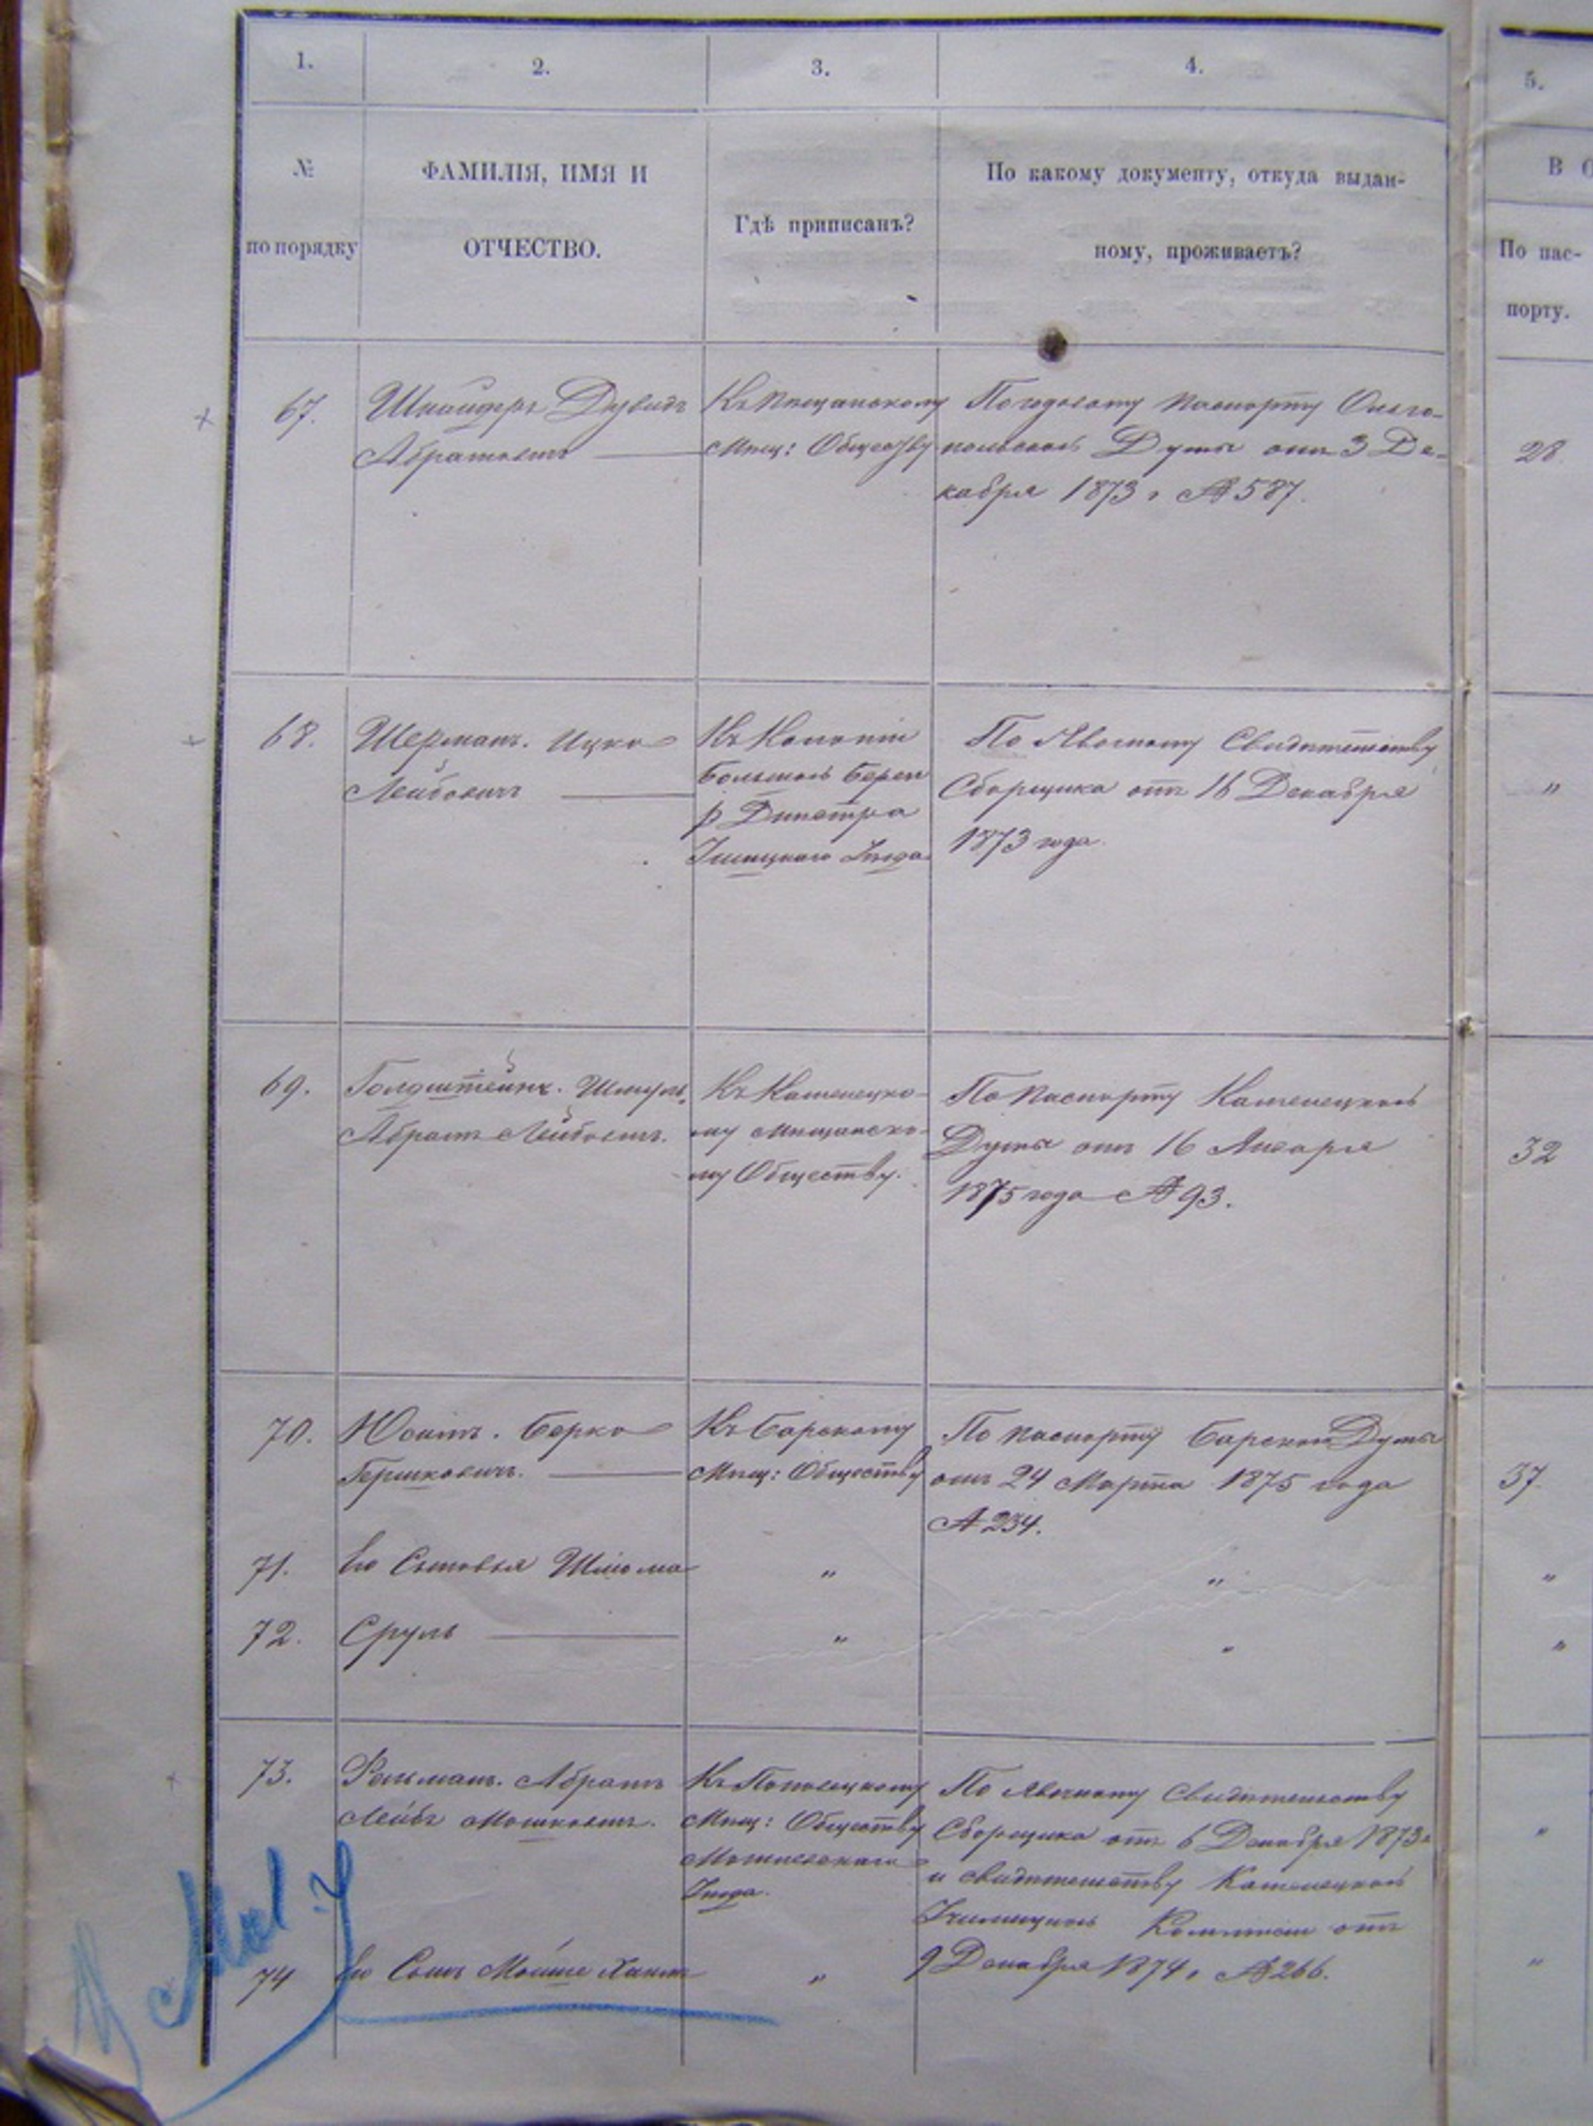 1.
2.
3.
4.
5.
№
по порядку
ФАМИЛІЯ, ИМЯ И
ОТЧЕСТВО.
Гдѣ приписанъ?
По какому документу, откуда выдан-
ному, проживаетъ?
По пас-
порту.
67.
Шнайдеръ Дувидъ
Абрамовичъ
Къ Пѣщанскому
Мѣщ: Обществу
По годовому паспорту Ольго-
польской Думы отъ 3 Де-
кабря 1873 г №587.
28
68.
Шерманъ. Ицко
Лейбовичъ
Къ Колоніи
Большой Берегъ
р Днѣстра
Ушицкаго Уѣзда
По Явочному Свидѣтельству
Сборщика отъ 16 Декабря
1873 года
"
69.
Голдштейнъ. Шмуль
Абрамъ Лейбовичъ.
Къ Каменецко-
му Мѣщанско-
му Обществу.
По Паспорту Каменецкой
Думы отъ 16 Января
1875 года №93.
32
70.
Берко
Гершковичъ.
Къ Барскому
Мѣщ: Обществу
По паспорту Барской Думы
отъ 24 Марта 1875 года
№234.
37
71.
Его Сыновья Шлiома
"
"
"
72.
Сруль
"
"
"
73.
Абрамъ
Лейбъ Мошковичъ.
Мѣщ: Обществу
Могилевскаго
Уѣзда.
По явочному свидѣтельству
Сборщика отъ 6 Декабря 1873 г
и свидѣтельству Каменецкой
отъ
9 Декабря 1874 г №266.
"
74
Его Сынъ Мойше Хаимъ
"
"